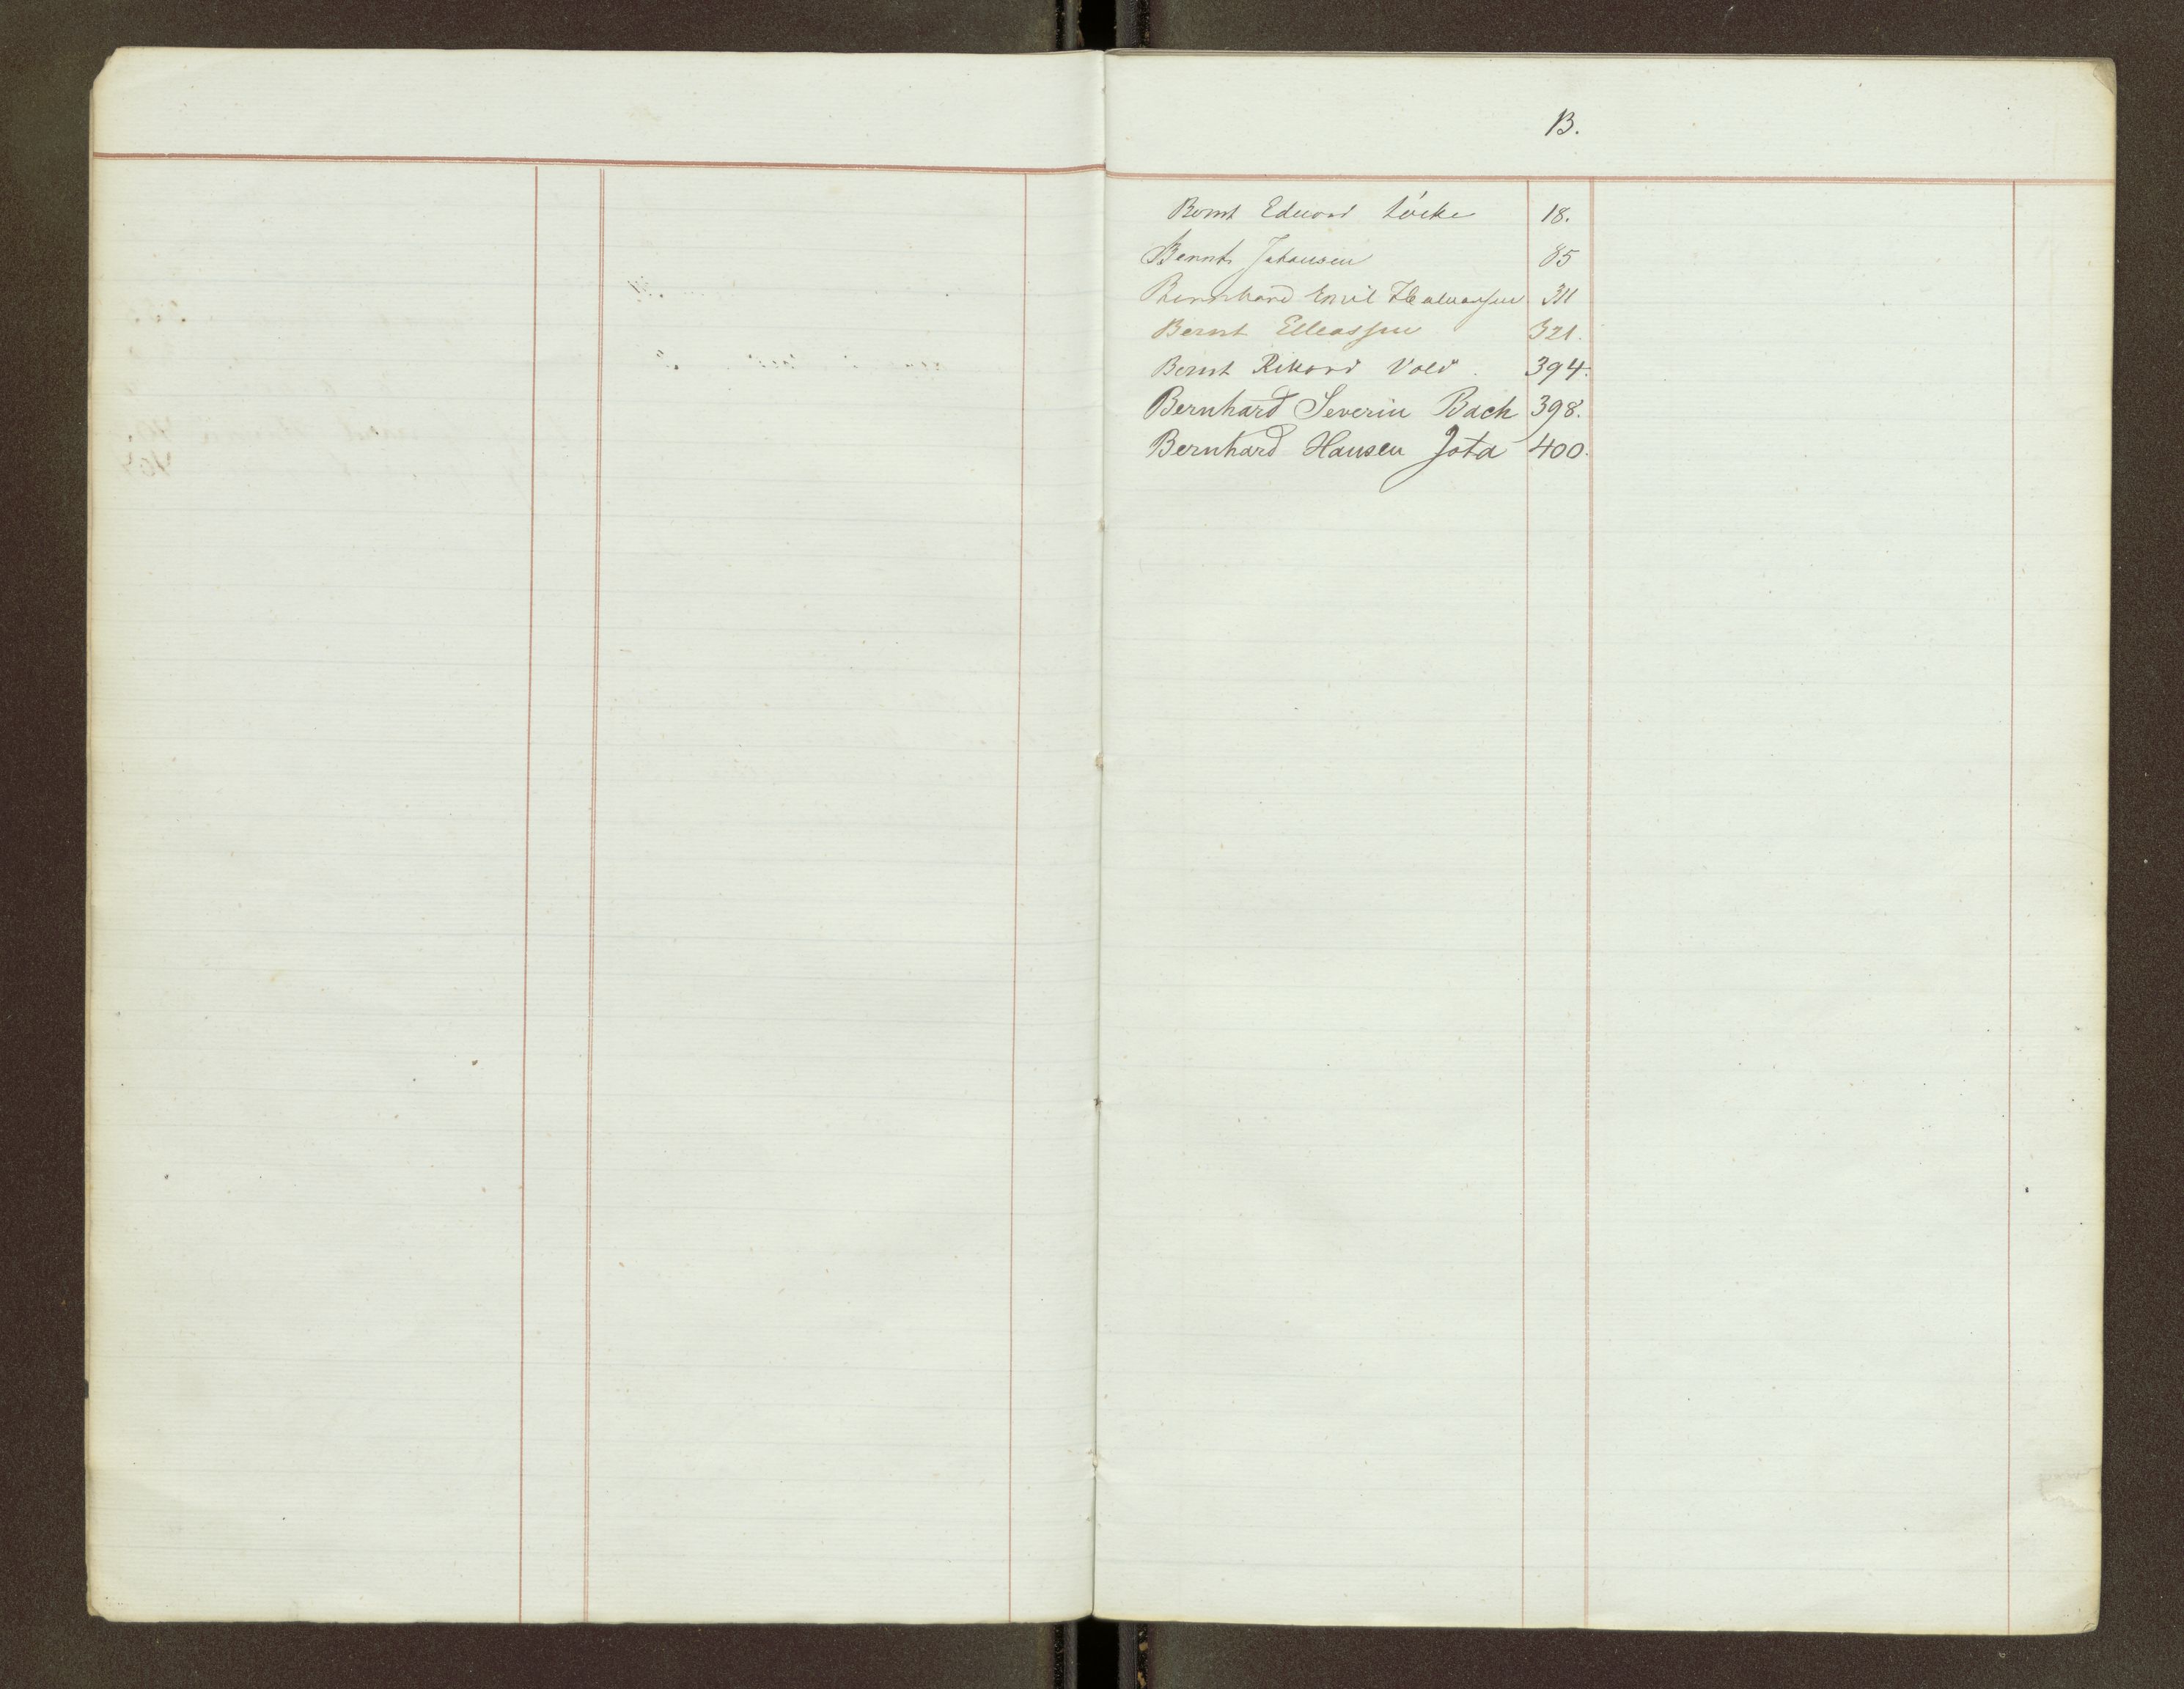 B.
Bernt Eduard Löcke 18.
Bernt Johansen 85
Bernhard Emil Halvorsen 311
Bernt Elleassen 321.
Bernt Rikard Vold. 394.
Bernhard Severin Bach 398.
Bernhard Hansen Jota 400.